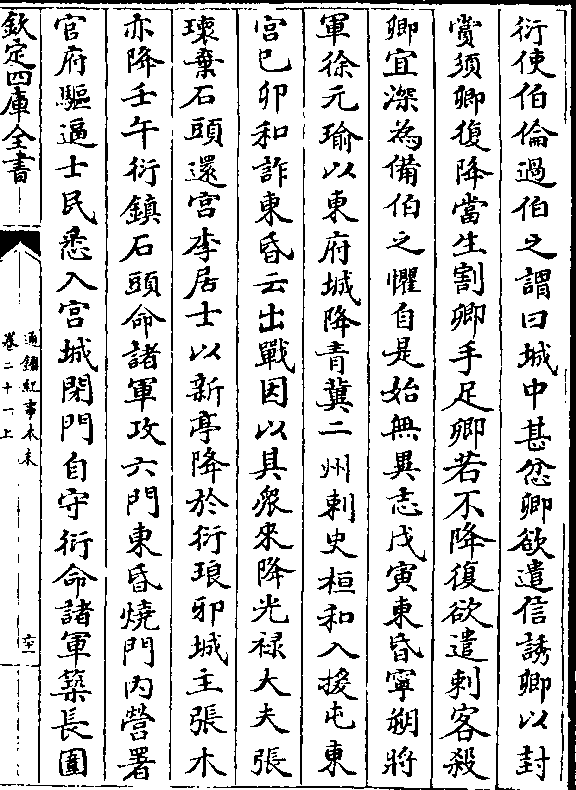 衍使伯倫過伯之謂曰城中甚忿卿欲遣信誘卿以封
賞須卿復降當生割卿手足卿若不降復欲遣刺客殺
卿宜深為備伯之懼自是始無異志戊寅東昏寧朔將
軍徐元瑜以東府城降青冀二州刺史桓和入援屯東
宫巳卯和詐東昏云出戰因以其衆來降光禄大夫張
瓌棄石頭還宫李居士以新亭降於衍琅邪城主張木
亦降壬午衍鎮石頭命諸軍攻六門東昏燒門内營署
官府驅逼士民悉入宫城閉門自守衍命諸軍築長圍
欽定四庫全書
通鑑紀事本末
卷二十一上